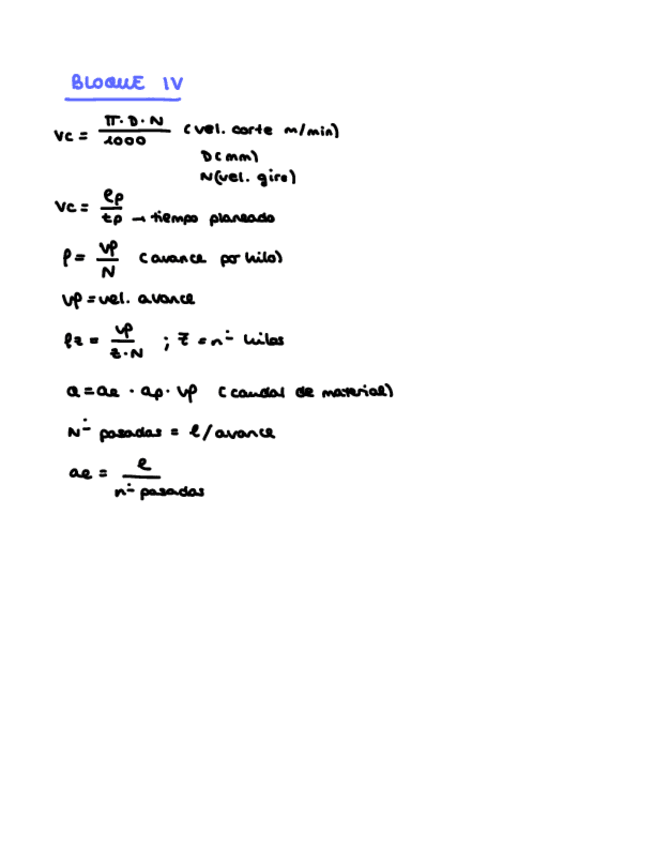 BLOQUE IV
Vc = π·D·N / 1000 (vel. corte m/min)
D(mm)
N(vel. giro)
Vc = ep / tp → tiempo planeado
f = vf / N (avance por hilo)
vf = vel. avance
fz = vf / z·N ; z = nº hilos
Q = ae · ap · vf (caudal de material)
Nº pasadas = l/avance
ae = e / nº pasadas